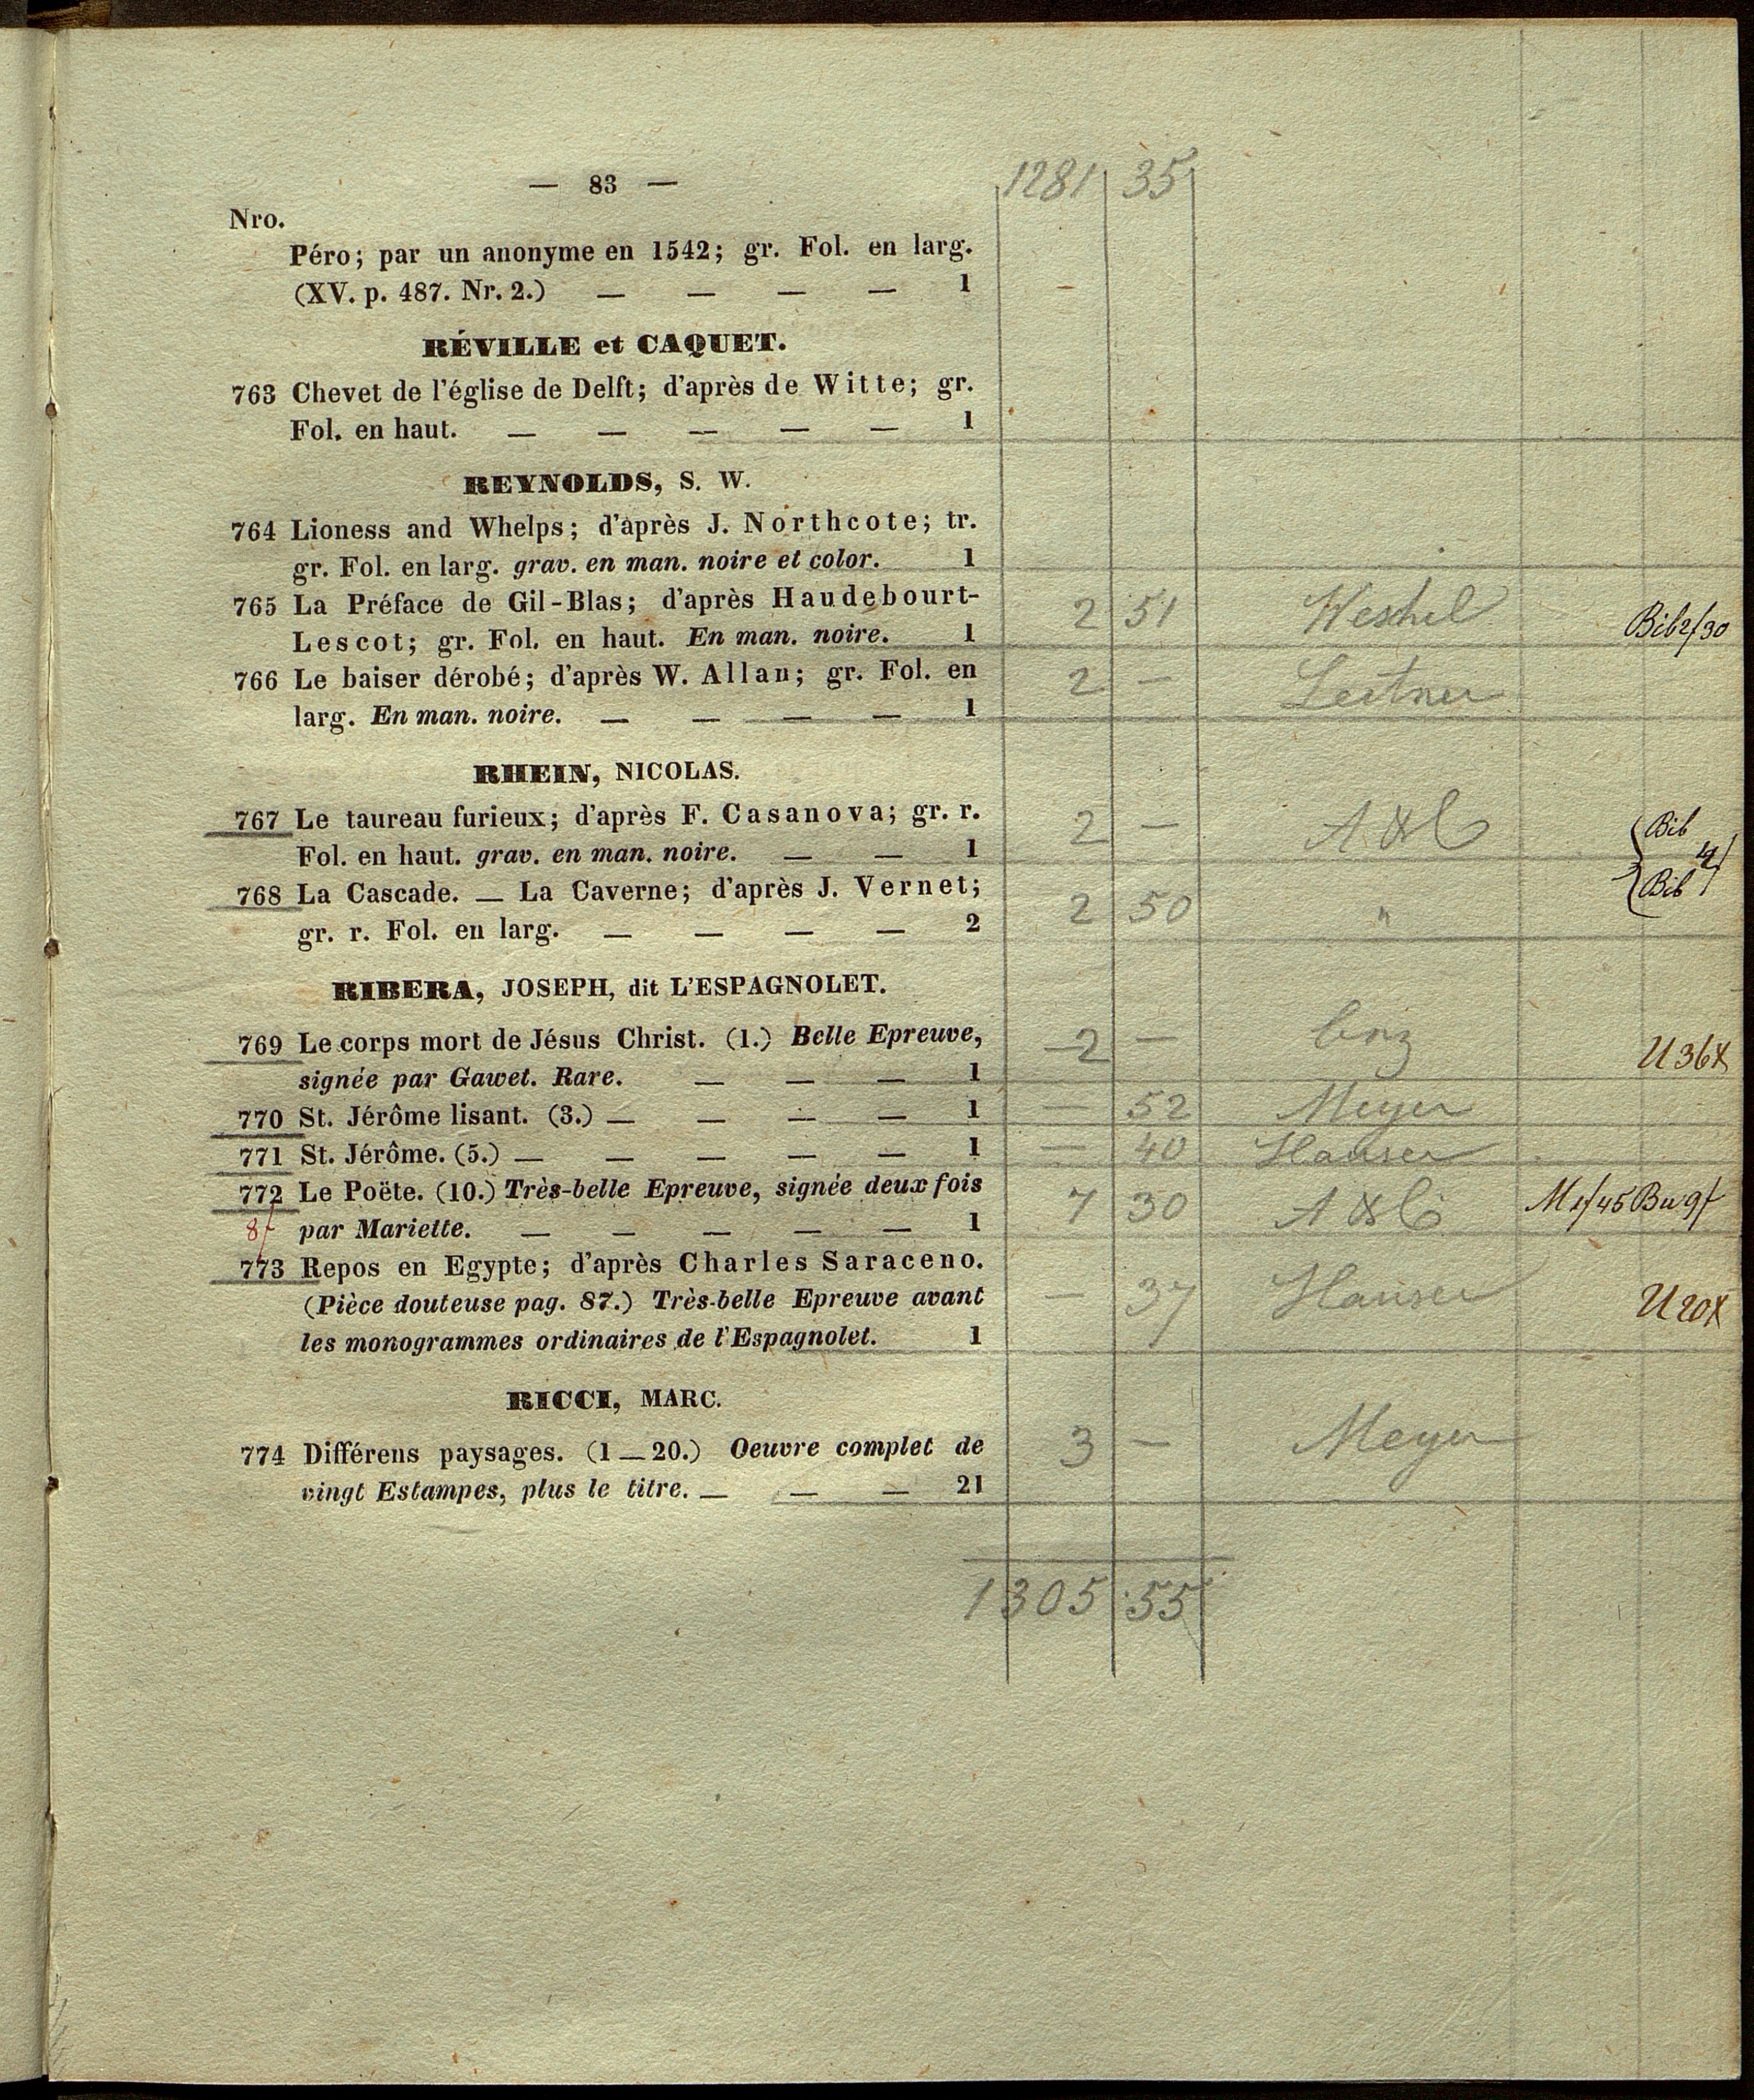 — 83 —
1281 35
Nro.
Péro; par un anonyme en 1542; gr. Fol. en larg.
(XV. p. 487. Nr. 2.) — — — — 1 –
RÉVILLE et CAQUET.
763 Chevet de l'église de Delft; d'après de Witte; gr.
Fol. en haut. — — — — — 1
REYNOLDS, S. W.
764 Lioness and Whelps; d'après J. Northcote; tr.
gr. Fol. en larg. grav. en man. noire et color. 1
765 La Préface de Gil-Blas; d'après Haudebourt-
Lescot; gr. Fol. en haut. En man. noire. 1
2 51 Weshel Bib 2/30
766 Le baiser dérobé; d'après W. Allan; gr. Fol. en
larg. En man. noire. — — — — 1
2 — Leitner
RHEIN, NICOLAS.
767 Le taureau furieux; d'après F. Casanova; gr. r.
Fol. en haut. grav. en man. noire. — — 1
2 — Bib
768 La Cascade. — La Caverne; d'après J. Vernet;
gr. r. Fol. en larg. — — — — 2
2 50 " Bib 4/
RIBERA, JOSEPH, dit L'ESPAGNOLET.
769 Le corps mort de Jésus Christ. (1.) Belle Epreuve,
signée par Gawet. Rare. — — — 1
2 — U 36x
770 St. Jérôme lisant. (3.) — — — — 1 — 52 Meyer
771 St. Jérôme. (5.) — — — — — 1 — 40 Hauser
772 Le Poëte. (10.) Très-belle Epreuve, signée deux fois
8f par Mariette. — — — — — 1
7 30 M 1/45 Bu 9f
773 Repos en Egypte; d'après Charles Saraceno.
(Pièce douteuse pag. 87.) Très-belle Epreuve avant
les monogrammes ordinaires de l'Espagnolet. 1
— 37 Hauser U 20x
RICCI, MARC.
774 Différens paysages. (1 — 20.) Oeuvre complet de
vingt Estampes, plus le titre. — — — 21
3 — Meyer
1305 55